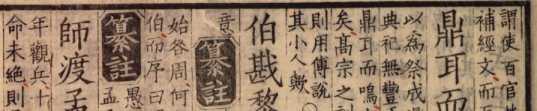 謂使百官
補經文而
鼎耳而
以爲祭成
典祀無豐
鼎耳而鳴
矣高宗之
則用傳說
其小人歟
伯戡黎
意
纂註
始咎周何
伯而序曰
纂註
愚
孟
師渡孟
年觀兵十
命未絕則